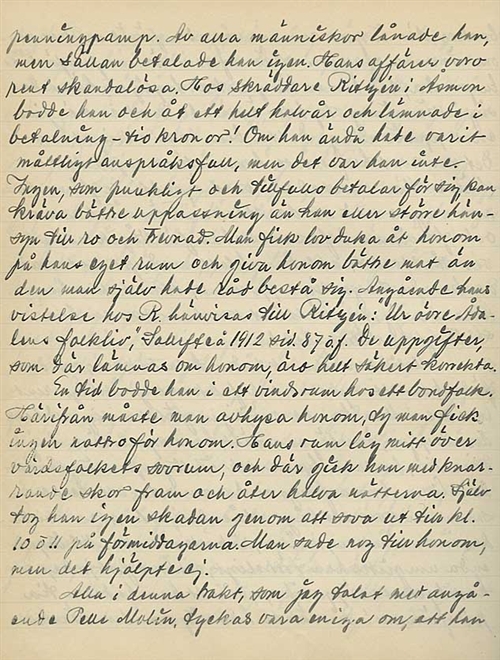 penningpamp. Av alla människor lånade han,
men sällan betalade han igen. Hans affärer voro
rent skandalösa. Hos skräddare Ritzén i Åsmon
bodde han och åt ett helt halvår och lämnade i
betalning – tio kronor! Om han ändå hade varit
måttligt anspråksfull, men det var han inte.
Ingen, som punkligt och tillfullo betalar för sig kan
kräva bättre uppassning än han eller större hän-
syn till ro och trevnad. Man fick lov duka åt honom
på hans eget rum och giva honom bättre mat än
den man själv hade råd bestå sig. Angående hans
vistelse hos R. hänvisas till Ritzén: Ur övre Åda-
lens folkliv", Sollefteå 1912 sid. 87 å f. De uppgifter,
som där lämnas om honom, äro helt säkert korrekta.
En tid bodde han i ett vindsrum hos ett bondfolk.
Härifrån måste man avhysa honom, ty man fick
ingen nattro för honom. Hans rum låg mitt över
värdsfolkets sovrum, och där gick han med knar-
rande skor fram och åter halva nätterna. Själv
tog han igen skadan genom att sova ut till kl.
10 å 11 på förmiddagarna. Man sade nog till honom,
men det hjälpte ej.
Alla i denna trakt, som jag talat med angå-
ende Pelle Molin, tyckas vara eniga om, att han